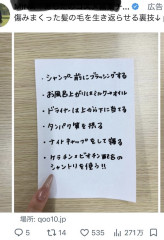 広告
傷みまくった髪の毛を生き返らせる裏技↓
・シャンプー前にブラッシングする
・お風呂上がりはミルク→オイル
・ドライヤーは上から下に当てる
・タンパク質を摂る
・ナイトキャップをして寝る
・ケラチンとビオチン配合の
シャントリを使う!!
場所: qoo10.jp
5
14
535
271万